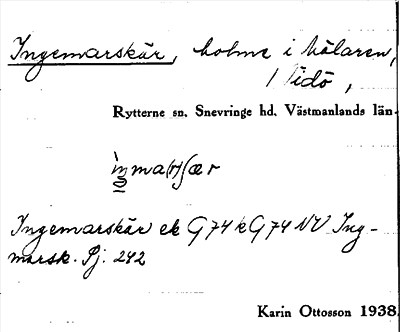 Ingemarskär, holme i Mälaren,
Ridö,
Rytterne sn. Snevringe hd. Västmanlands län.
Ingemarskär ek G 74 k G 74 NV Ing-
marsk. Pj. 242
Karin Ottosson 1938.